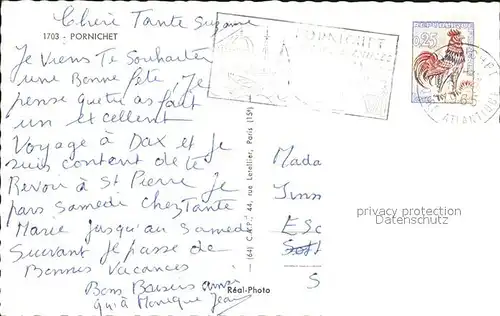 Chère Tante Suzanne
1703 - PORNICHET
Je Viens Te Souhaiter
une Bonne fête, Je
pense que tu as fait
un excellent
Voyage à Dax et Je
suis content de te
Revoir à St Pierre Je
pars Samedi chez Tante
Marie Jusqu'au Samedi
Suivant Je passe de
Bonnes Vacances
Bons Baisers ainsi
qu'à Monique Jean
(64) C.A.P., 44, rue Letellier, Paris (15e)
Réal-Photo
PORNICHET
RÉPUBLIQUE FRANÇAISE
0,25
ATLANTIQUE
Mada
S
privacy protection
Datenschutz